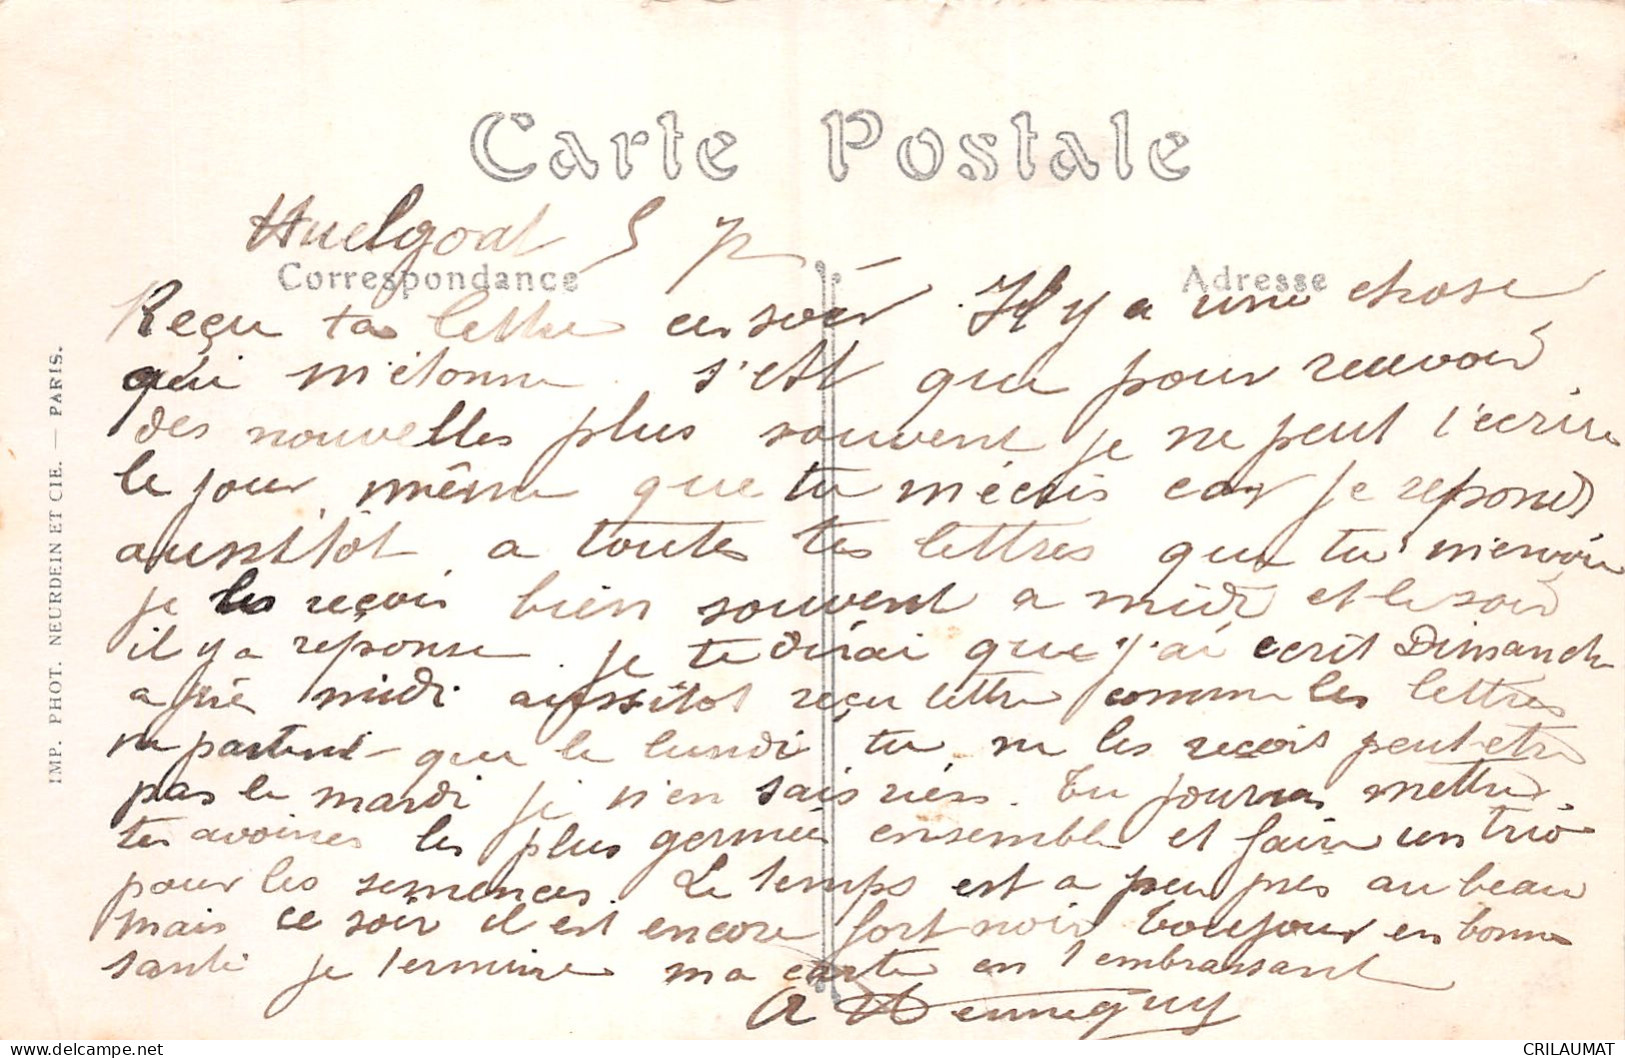 Carte Postale
Huelgoat 5 7
Correspondance
Adresse
Reçu ta lettre ce soir. Il y a une chose
qui m'étonne s'est que pour recevoir
des nouvelles plus souvent je ne peut t'ecrire
le jour même que tu m'écris car je reponds
aussitôt a toutes tes lettres que tu m'envoie
je les reçois bien souvent a midi et le soir
il y a reponse je te dirai que j'ai ecrit Dimanche
apré midi aussitot reçu lettre comme les lettres
ne partent que le lundi tu ne les reçois peut-etre
pas le mardi je n'en sais rien. Tu pourras mettre
tes avoines les plus germée ensemble et faire un trio
pour les semences Le temps est a peu pres au beau
mais ce soir il est encore fort noir toujour en bonne
santé je termine ma carte en t'embrassant
A Henneguy
IMP. PHOT. NEURDEIN ET CIE. — PARIS.
delcampe.net
CRILAUMAT